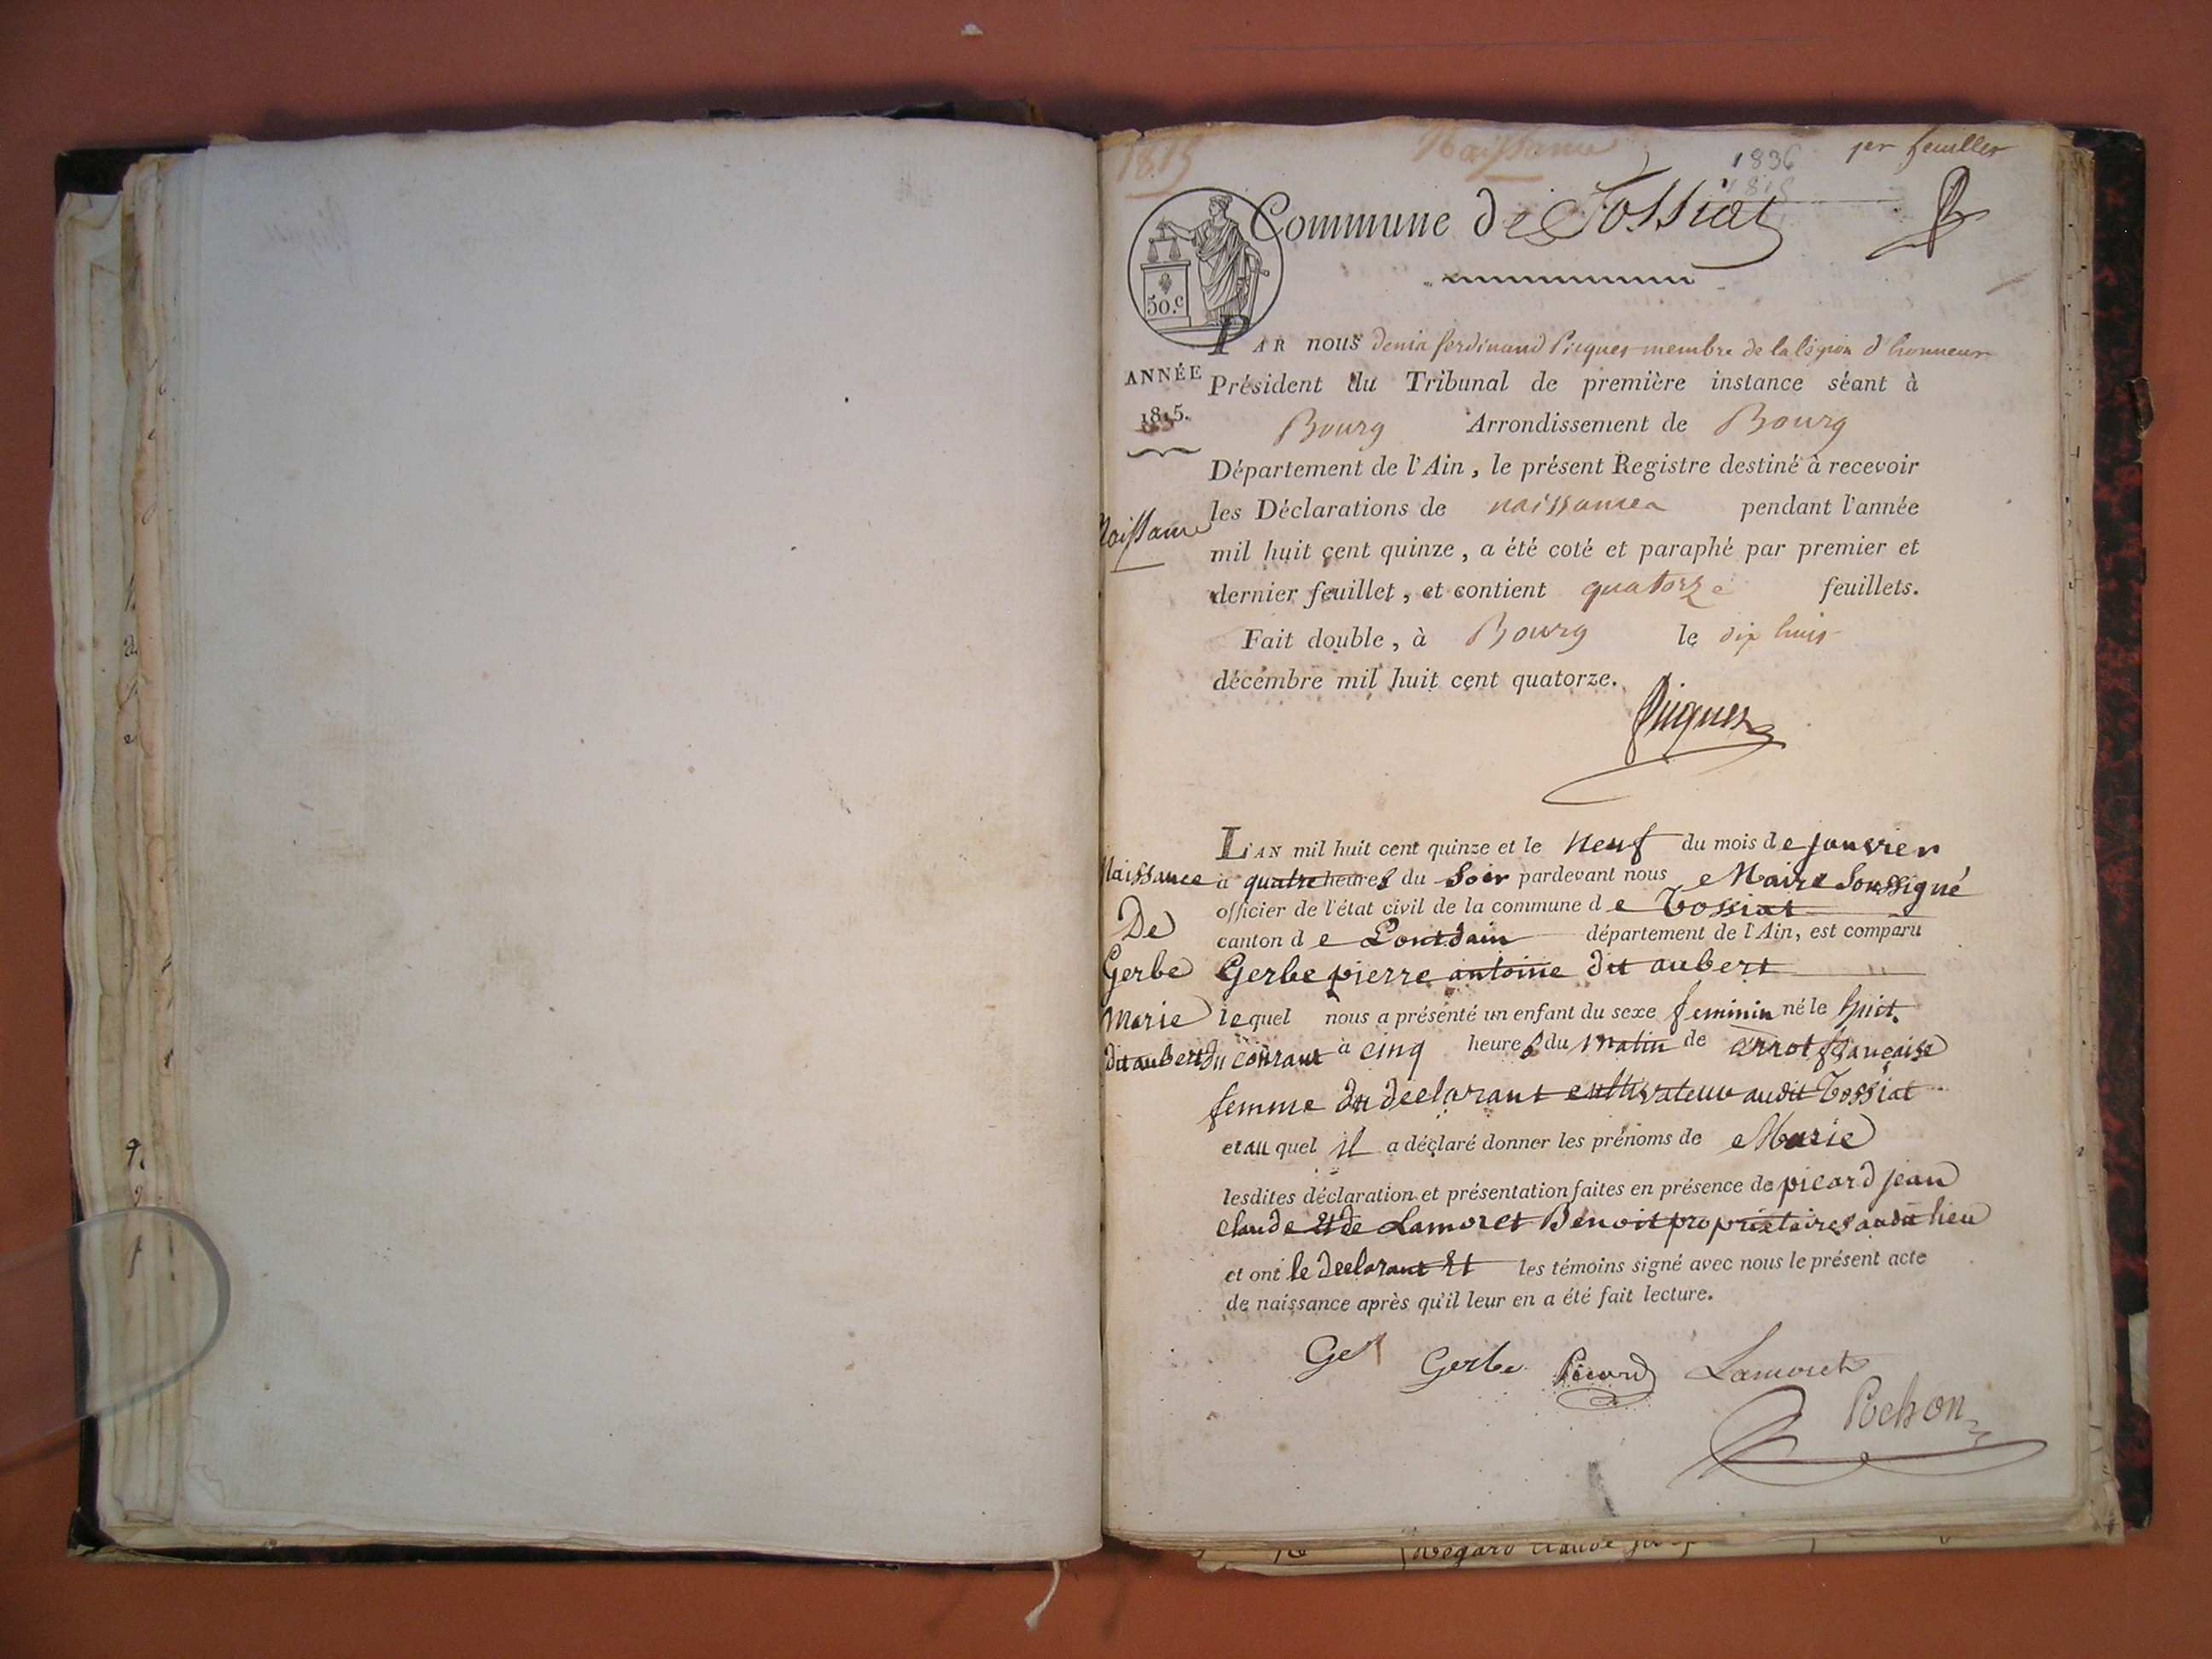 1815 Naissance 1836 1er feuillet
1815
Commune de Tossiat
50.c
PAR nous denis ferdinand Picquet membre de la légion d honneur
ANNÉE
1815.
Président du Tribunal de première instance séant à
Bourg Arrondissement de Bourg
Département de l'Ain, le présent Registre destiné à recevoir
Naissance
les Déclarations de naissances pendant l'année
mil huit cent quinze, a été coté et paraphé par premier et
dernier feuillet, et contient quatorze feuillets.
Fait double, à Bourg le dix huit
décembre mil huit cent quatorze.
Picquet
L'AN mil huit cent quinze et le neuf du mois de janvier
à quatre heures du Soir pardevant nous Maire Soussigné
officier de l'état civil de la commune de Tossiat
canton de Pontdain département de l'Ain, est comparu
Gerbe pierre antoine dit aubert
lequel nous a présenté un enfant du sexe feminin né le huit
du courant à cinq heures du matin de françaises
femme du declarant cultivateur audit Tossiat
et au quel il a déclaré donner les prénoms de Marie
lesdites déclaration et présentation faites en présence de picard jean
claude Et de Lamoret Benoit propriétaires audit lieu
et ont le declarant Et les témoins signé avec nous le présent acte
de naissance après qu'il leur en a été fait lecture.
Naissance
De
Gerbe
Marie
dit aubert
Ge Gerbe Picard Lamoret
Rchon